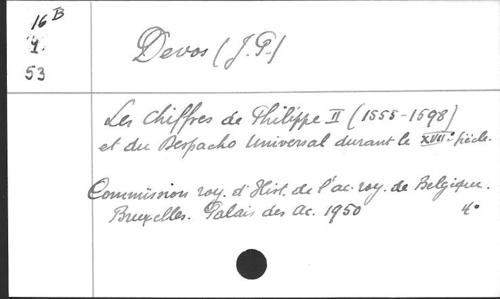 16 B
7.
53
Devos (J. P.)
Les Chiffres de Philippe II (1555-1598)
et du Despacho Universal durant le XVIIe siècle.
Commission roy. d'Hist. de l'ac. roy. de Belgique.
Bruxelles. Palais des Ac. 1950 4°